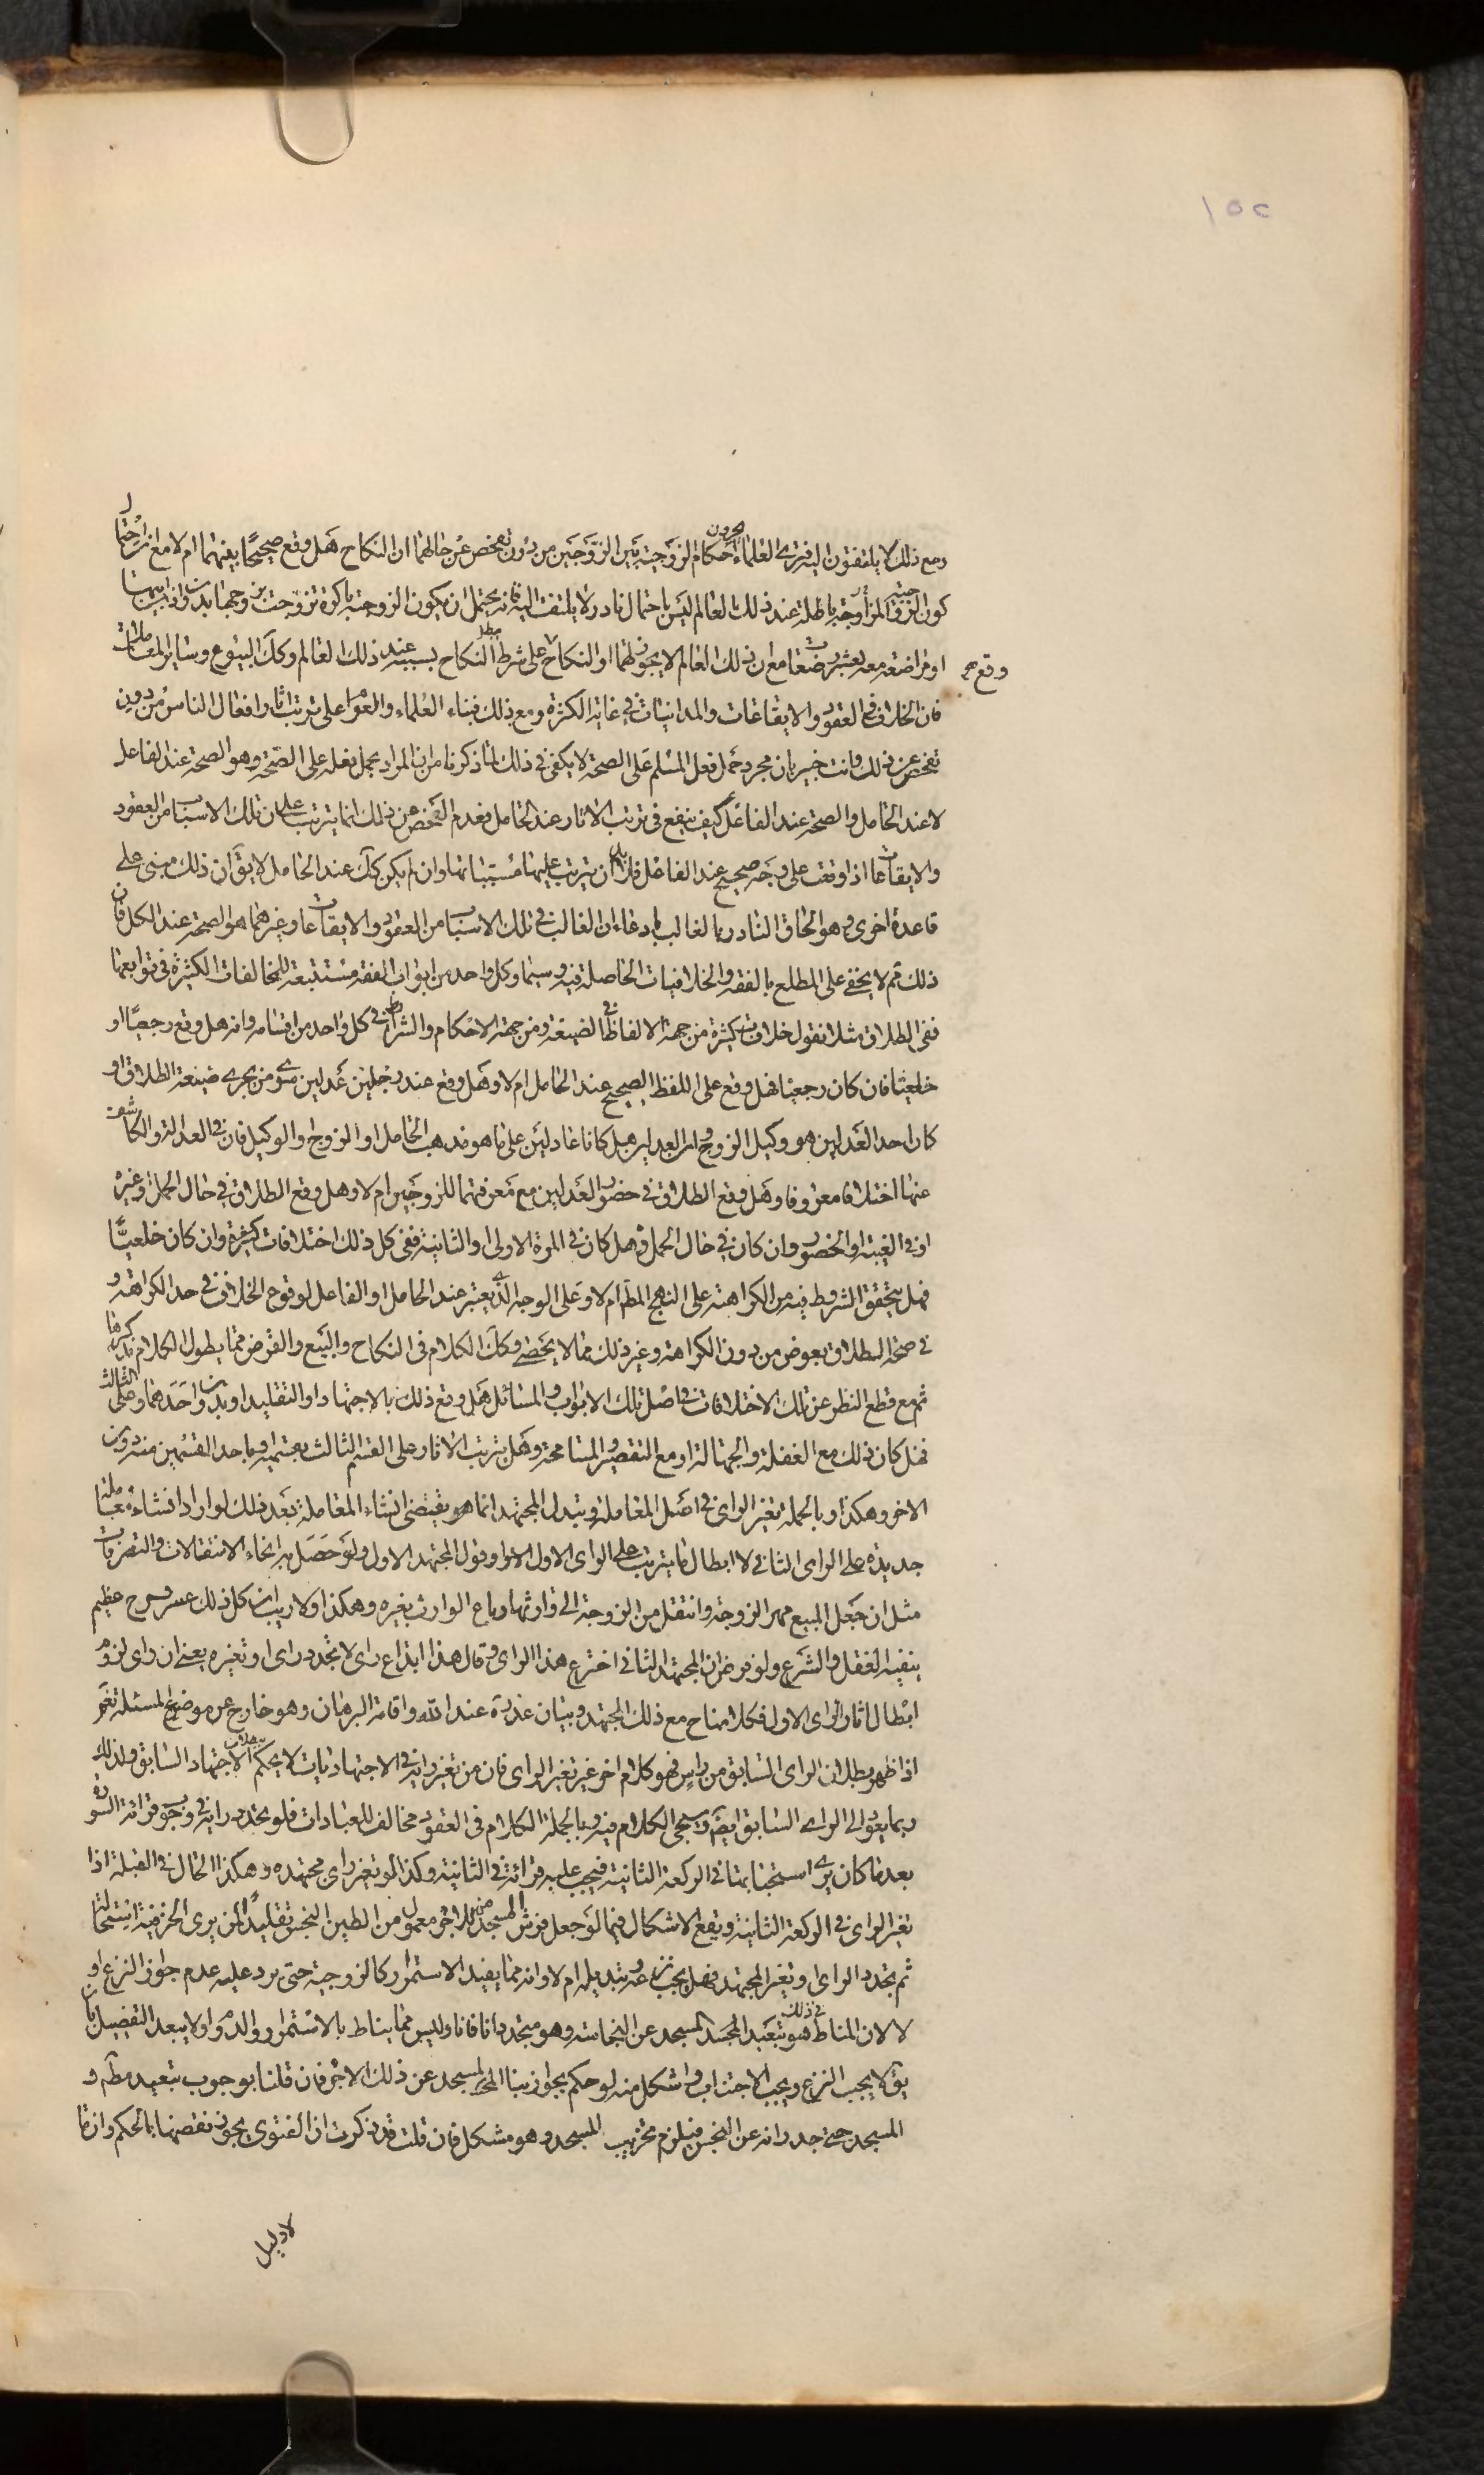 ١٥٢
ومع ذلك لا يلتفتون اليه فترى العلماء يجرون احكام الزوجية بين الزوجين من دون تفحص عن حالهما ان النكاح هل وقع صحيحا بينهما ام لا مع ان احتمال
كون الزوجية باطلة عند ذلك العالم ليس باحتمال نادر لا يلتفت اليه فانه يحتمل ان يكون الزوجة باكرة تزوجت بزوجها بدون اذن ابيها
او مراضعة معه بعشر رضعات مع ان ذلك العالم لا يجوزهما او النكاح وقع على شرط مبطل النكاح بسببه عند ذلك العالم وكك البيوع وساير المعاملات
فان الخلاف في العقود والايقاعات والمداينات في غاية الكثرة ومع ذلك فبناء العلماء والعوام على ترتب اثار افعال الناس من دون
تفحص عن ذلك وانت خبير بان مجرد حمل فعل المسلم على الصحة لا يكفي في ذلك لما ذكرنا من ان المراد بحمل فعله على الصحة هو الصحة عند الفاعل
لا عند الحامل والصحة عند الفاعل كيف ينفع في ترتب الاثار عند الحامل فعدم الفحص عن ذلك انما يترتب على ان تلك الاسباب من العقود
والايقاعات اذا وقعت على وجه صحيح عند الفاعل فلا بد ان يترتب عليها مسبباتها وان لم يكن كك عند الحامل لا يق ان ذلك مبني على
قاعدة اخرى وهو الحاق النادر بالغالب بادعاء ان الغالب في تلك الاسباب من العقود والايقاعات وغيرهما هو الصحة عند الكل فان
ذلك مما لا يخفى على المطلع بالفقه والخلافيات الحاصلة فيه سيما وكل واحد من ابواب الفقه مستتبعة للمخالفات الكثيرة في توابعها
ففي الطلاق مثلا نقول خلافات كثيرة من جهة الالفاظ في الصيغة ومن جهة الاحكام والشرايط في كل واحد من اقسامه وانه هل وقع رجعيا او
خلعيا فان كان رجعيا فهل وقع على اللفظ الصحيح عند الحامل ام لا وهل وقع عند رجلين عدلين سوى من يجرى صيغة الطلاق او
كان احد العدلين هو وكيل الزوج وهل كانا عادلين على ما هو مذهب الحامل او الزوج او الوكيل فان في العدالة والكاشف
عنها اختلافا معروفا وهل وقع الطلاق في حضور العدلين مع معرفتهما للزوجين ام لا وهل وقع الطلاق في حال الحمل وغيره
او في الغيبة او الحضور وان كان في حال الحمل فهل كان في المرة الاولى او الثانية ففي كل ذلك اختلافات كثيرة وان كان خلعيا
فهل يتحقق الشروط فيه من الكراهة على النهج المط ام لا وعلى الوجه الذي يعتبر عند الحامل او الفاعل لوقوع الخلاف في حد الكراهة و
في صحة الطلاق بعوض من دون الكراهة وغير ذلك مما لا يحصى وكك الكلام في النكاح والبيع والقرض مما يطول الكلام بذكرها
ثم مع قطع النظر عن تلك الاختلافات في اصل تلك الابواب والمسائل هل وقع ذلك بالاجتهاد او التقليد او بدون احدهما وعلى الثالث
فهل كان ذلك مع الغفلة والجهالة او مع التقصير والمسامحة وهل يترتب الاثار على القسم الثالث بقسميه او باحد القسمين منه دون
الاخر وهكذا وبالجملة تغير الراى في اصل المعاملة وتبدل المجتهد انما هو يقتضى انشاء المعاملة بعد ذلك لو اراد انشاء معاملة
جديدة على الراى الثاني لا ابطال ما يترتب على الراى الاول وقول المجتهد الاول ولو حصل به انحاء الانتقالات والتصرفات
مثل ان جعل المبيع مهر الزوجة وانتقل من الزوجة الى وارثها وباع الوارث بغيره وهكذا ولا ريب ان كل ذلك عسر وحرج عظيم
ينفيه العقل والشرع ولو فرض ان المجتهد الثاني اخترع هذا الراى وقال هذا ابداع راى لا تجدد راى او تغيره يعني ان راى لزوم
ابطال اثار الراى الاول فكلامنا ح مع ذلك المجتهد وبيان عذره عند الله واقامة البرهان وهو خارج عن موضوع المسئلة نعم
اذا ظهر بطلان الراى السابق من راس فهو كلام اخر غير تغير الراى فان من تغير رايه في الاجتهاديات لا يحكم ببطلان الاجتهاد السابق ولذلك
ربما يعود الى الراى السابق ايض وسيجئ الكلام فيه وبالجملة الكلام في العقود مخالف للعبادات فلو تجدد رايه في وجوب قرائة السورة
بعد ما كان يرى استحبابها في الركعة الثانية فيجب عليه قرائة في الثانية وكذا لو تغير راى مجتهده وهكذا الحال في القبلة اذا
تغير الراى في الركعة الثانية ويقع الاشكال فيما لو جعل فرش المسجد من الاجر معمول من الطين النجس تقليدا لمن يرى الخزفية استحالة
ثم تجدد الراى او تغير المجتهد فهل يجب نزعه وتبديله ام لا وانه مما يفيد الاستمرار كالزوجية حتى يرد عليه عدم جواز النزع او
لا لان المناط في ذلك هو تبعيد المسجد عن النجاسة وهو متجدد انا فانا وليس مما يناط بالاستمرار والدوام ولا يبعد التفصيل بان
يق لا يجب النزع ويجب الاجتناب واشكل منه لو حكم بجواز بناء المسجد عن ذلك الاجر فان قلنا بوجوب تبعيد مط و
المسجد حتى جدرانه عن النجس فيلزم تخريب المسجد وهو مشكل فان قلت قد ذكرت ان الفتوى يجوز نقضها بالحكم وان ما
لا دليل